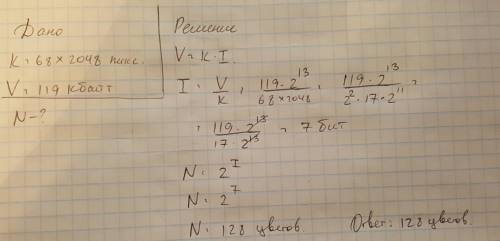 Дано
K = 68 × 2048 пикс.
V = 119 кбайт
N - ?
Решение
V = K · I.
I = V/K = 119 · 2^13 / 68 × 2048 = 119 · 2^13 / 2^2 · 17 · 2^11 =
= 119 · 2^13 / 17 · 2^13 = 7 бит
N = 2^I
N = 2^7
N = 128 цветов. Ответ: 128 цветов.